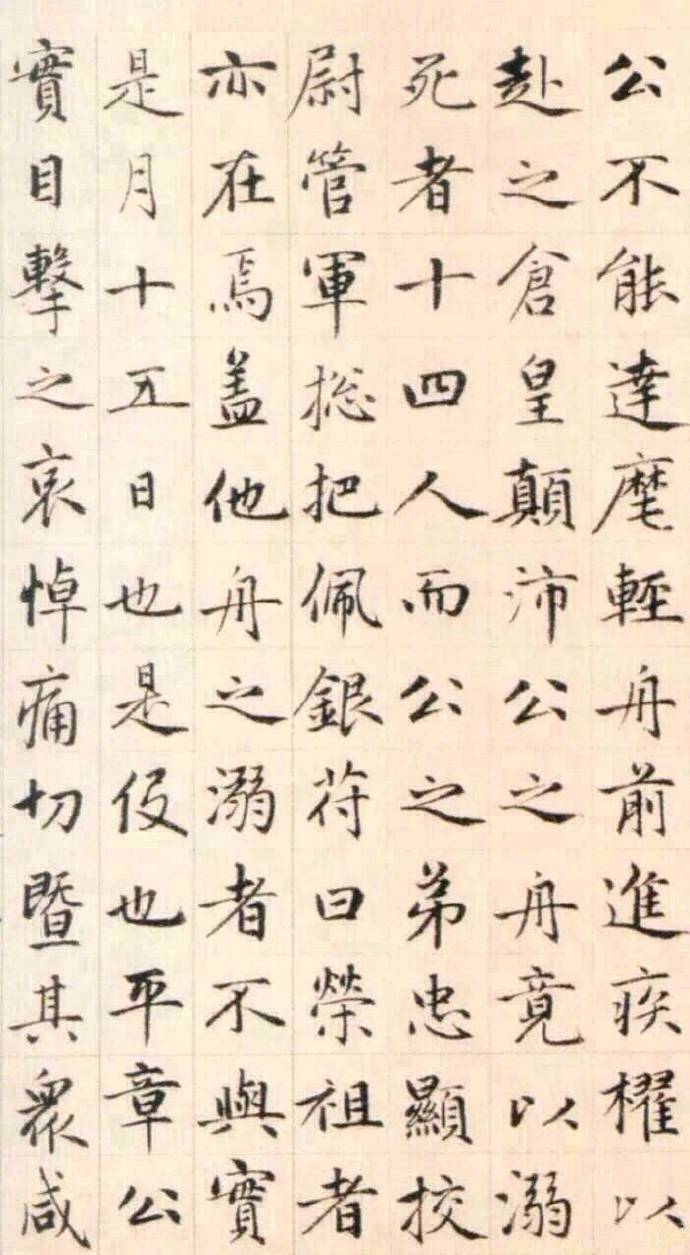 公不能達麾輕舟前進疾櫂以
赴之倉皇顛沛公之舟竟以溺
死者十四人而公之弟忠顯挍
尉管軍捴把佩銀苻曰榮祖者
亦在焉盖他舟之溺者不與實
是月十五日也是役也平章公
實目擊之哀悼痛切暨其衆咸